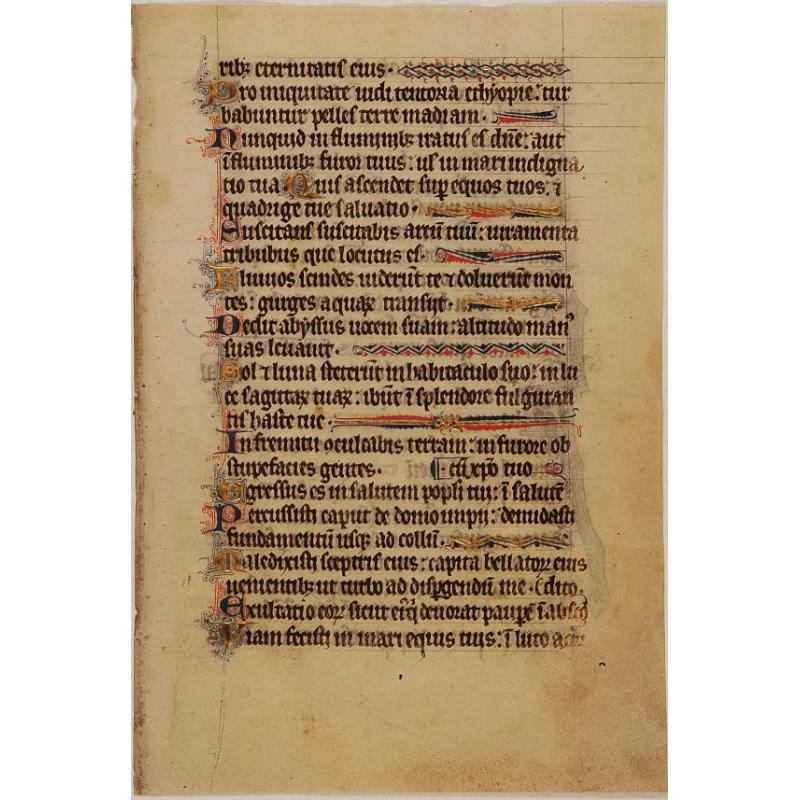 ribꝫ eternitatis eius.
Pro iniquitate uidi tentoria ethyopie: tur
babuntur pelles terre madian.
Nunquid in fluminibꝫ iratus es dñe: aut
ĩ fluminibꝫ furor tuus: uł in mari indigna
tio tua Quis ascendet suꝑ equos tuos: ⁊
quadrige tue saluatio.
Suscitans suscitabis arcũ tuũ: iuramenta
tribubus que locutus es.
Fluuios scindes uiderũt te ⁊ doluerũt mon
tes: gurges aquaꝝ transijt.
Dedit abyssus uocem suam: altitudo manꝰ
suas leuauit.
Sol ⁊ luna steterũt in habitaculo suo: in lu
ce sagitaꝝ tuaꝝ: ibũt ĩ splendore fulguran
tis haste tue.
In fremitu oculcabis terram: in furore ob
stupefacies gentes. cũ xp̃o tuo
Egressus es in salutem popli tui: ĩ salutẽ
Percussisti caput de domo impij: denudasti
fundamentũ usqꝫ ad collũ.
Maledixisti sceptris eius: capita bellatoꝝ eius
uenientibꝫ ut turbo ad disꝑgendũ me. dito.
Exultatio eoꝝ sicut eiꝰ q̇ deuorat pauꝑẽ ĩ abscõ
Viam fecisti in mari equis tuis: ĩ luto